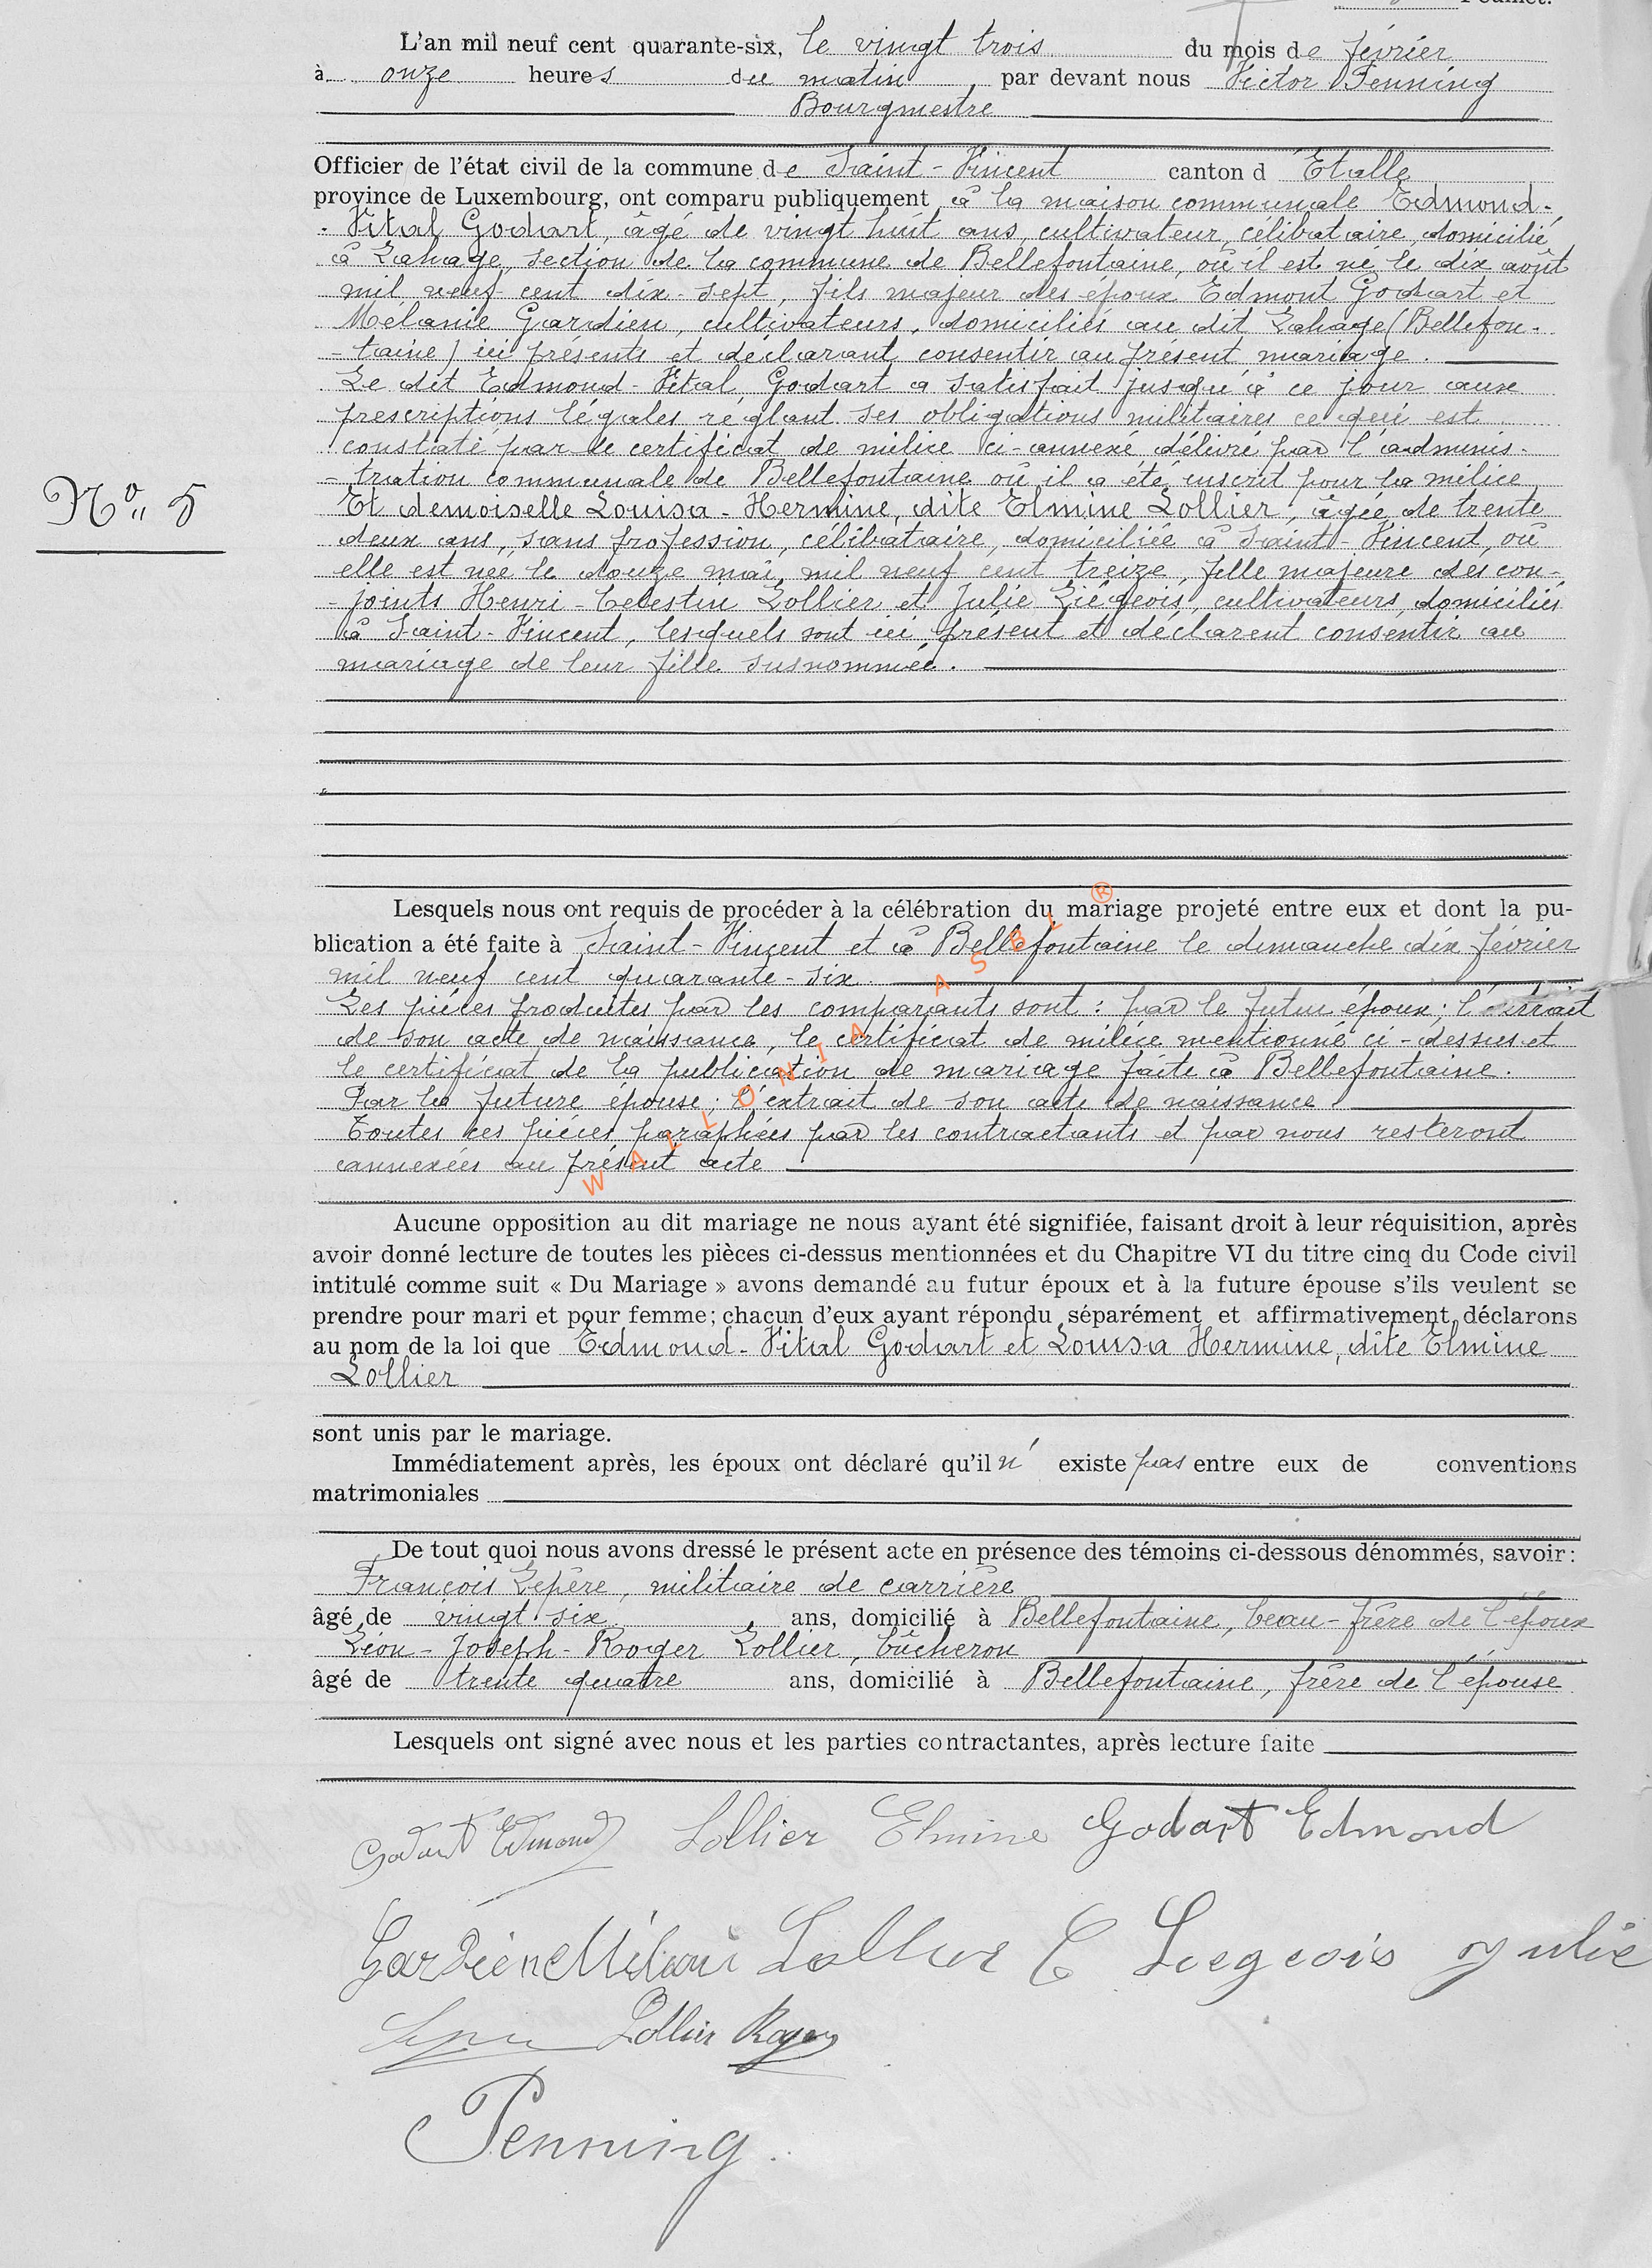 Feuillet.
L'an mil neuf cent quarante-six, le vingt trois du mois de février
à onze heures du matin par devant nous Victor Penning
Bourgmestre
Officier de l'état civil de la commune de Saint-Vincent canton d'Etalle
province de Luxembourg, ont comparu publiquement à la maison communale Edmond-
- Vital Godart, âgé de vingt huit ans, cultivateur, célibataire, domicilié
à Lahage, section de la commune de Bellefontaine, où il est né le dix août
mil neuf cent dix-sept, fils majeur des époux Edmont Godart et
Mélanie Gardien, cultivateurs, domiciliés au dit Lahage (Bellefon-
- taine) ici présents et déclarant consentir au présent mariage.
Le dit Edmond-Vital Godart a satisfait jusqu'à ce jour aux
prescriptions légales réglant ses obligations militaires ce qui est
constaté par le certificat de milice ci-annexé délivré par l'adminis-
- tration communale de Bellefontaine où il a été inscrit pour la milice
N° 5
Et demoiselle Louisa-Hermine, dite Elmine Lollier, âgée de trente
deux ans, sans profession, célibataire, domiciliée à Saint-Vincent, où
elle est née le douze mai mil neuf cent treize, fille majeure des con-
- joints Henri-Celestin Lollier et Julie Liégeois, cultivateurs, domiciliés
à Saint-Vincent, lesquels sont ici présent et déclarent consentir au
mariage de leur fille susnommée.
Lesquels nous ont requis de procéder à la célébration du mariage projeté entre eux et dont la pu-
blication a été faite à Saint-Vincent et à Bellefontaine le dimanche dix février
mil neuf cent quarante-six.
Les pièces produites par les comparants sont : par le futur époux ; l'extrait
de son acte de naissance, le certificat de milice mentionné ci-dessus et
le certificat de la publication de mariage faite à Bellefontaine.
Par la future épouse ; l'extrait de son acte de naissance.
Toutes ces pièces paraphées par les contractants et par nous resteront
annexées au présent acte
WALLONIA ASBL ®
Aucune opposition au dit mariage ne nous ayant été signifiée, faisant droit à leur réquisition, après
avoir donné lecture de toutes les pièces ci-dessus mentionnées et du Chapitre VI du titre cinq du Code civil
intitulé comme suit « Du Mariage » avons demandé au futur époux et à la future épouse s'ils veulent se
prendre pour mari et pour femme; chacun d'eux ayant répondu séparément et affirmativement, déclarons
au nom de la loi que Edmond-Vital Godart et Louisa Hermine, dite Elmine
Lollier
sont unis par le mariage.
Immédiatement après, les époux ont déclaré qu'il n'existe pas entre eux de conventions
matrimoniales
De tout quoi nous avons dressé le présent acte en présence des témoins ci-dessous dénommés, savoir:
François Lepère, militaire de carrière
âgé de vingt six ans, domicilié à Bellefontaine, beau-frère de l'époux
Léon-Joseph-Roger Lollier, bûcheron
âgé de trente quatre ans, domicilié à Bellefontaine, frère de l'épouse
Lesquels ont signé avec nous et les parties contractantes, après lecture faite
Godart Edmond Lollier Elmine Godart Edmond
Gardien Mélanie Lollier C Liegeois Julie
Lollier Roger
Penning